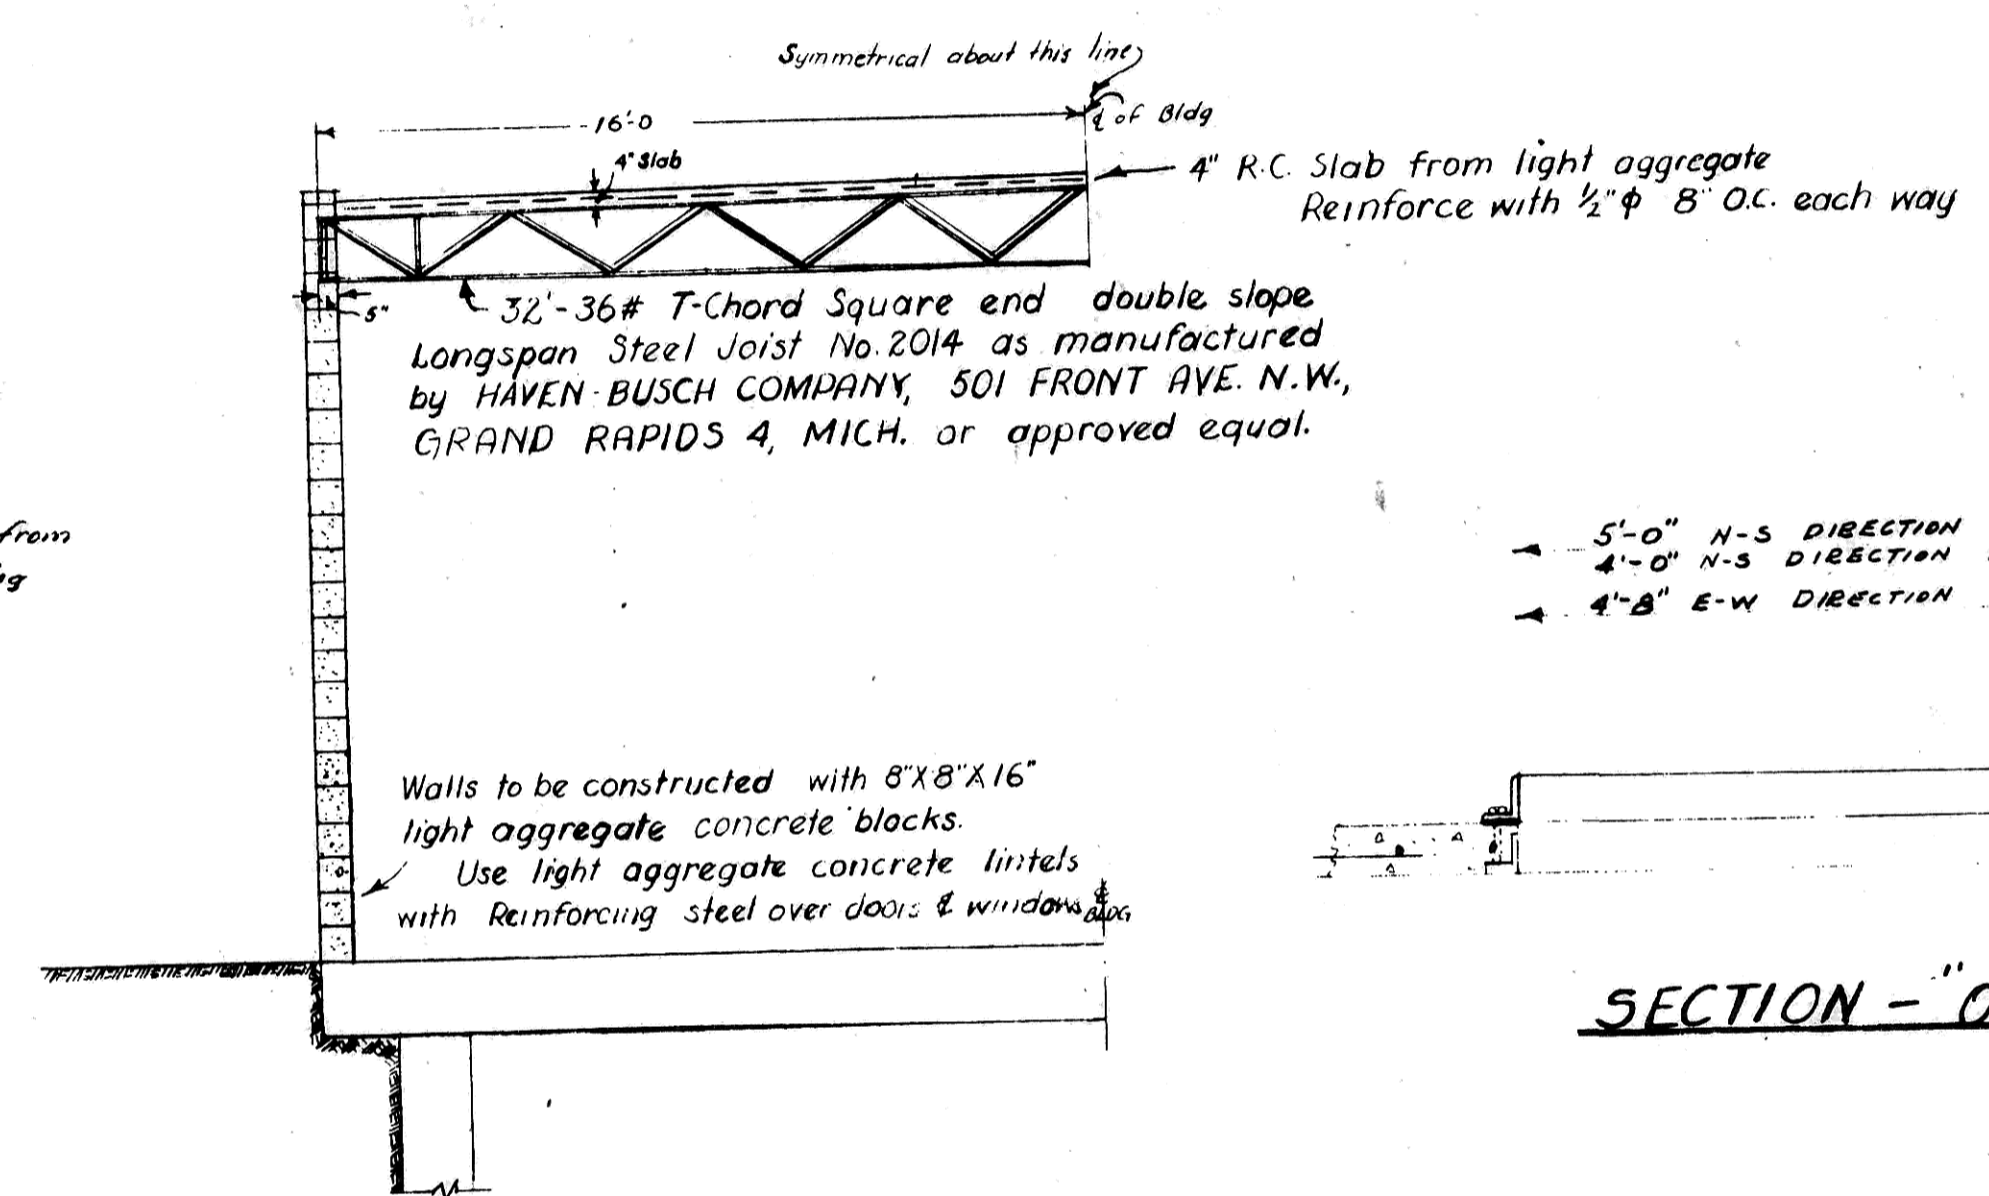 Symmetrical about this line
16'-0
℄ of Bldg
4" Slab
4" R.C. Slab from light aggregate
Reinforce with ½" ϕ 8" O.C. each way
5"
32'-36# T-Chord Square end double slope
Longspan Steel Joist No. 2014 as manufactured
by HAVEN-BUSCH COMPANY, 501 FRONT AVE. N.W.,
GRAND RAPIDS 4, MICH. or approved equal.
from
5'-0" N-S DIRECTION
4'-0" N-S DIRECTION
4'-8" E-W DIRECTION
Walls to be constructed with 8"X8"X16"
light aggregate concrete blocks.
Use light aggregate concrete lintels
with Reinforcing steel over doors & windows
℄
BLDG
SECTION -